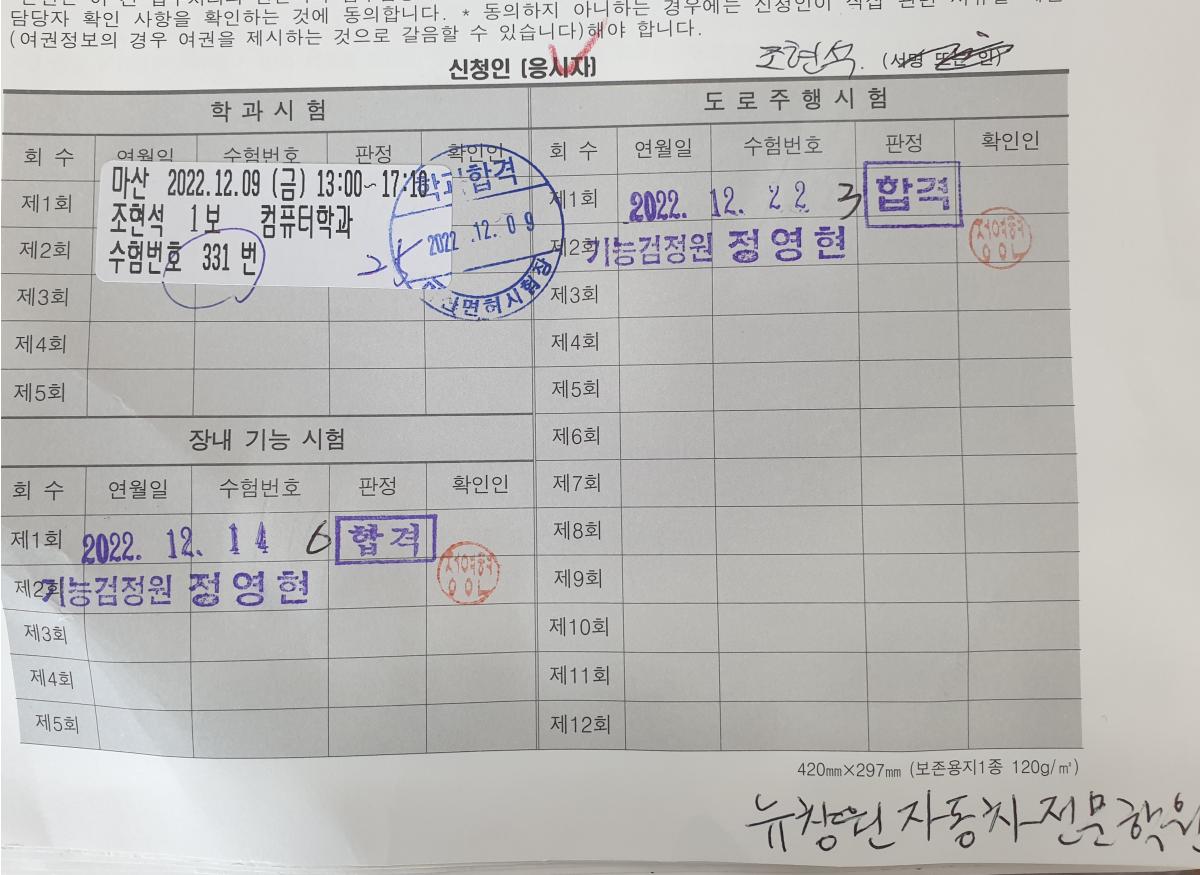 담당자 확인 사항을 확인하는 것에 동의합니다. * 동의하지 아니하는 경우에는 신청인이 직접 관련
(여권정보의 경우 여권을 제시하는 것으로 갈음할 수 있습니다)해야 합니다.
신청인 (응시자) 조현석. (서명 또는 인)
학과시험
회 수 연월일 수험번호 판정 확인인
제1회
제2회
제3회
제4회
제5회
마산 2022.12.09 (금) 13:00~17:10
조현석 1보 컴퓨터학과
수험번호 331 번
합격
2022.12.09
면허시험장
장내 기능 시험
회 수 연월일 수험번호 판정 확인인
제1회 2022. 12. 14 6 합격
제2회 기능검정원 정영현
제3회
제4회
제5회
도로주행시험
회 수 연월일 수험번호 판정 확인인
제1회 2022. 12. 22 3 합격
제2회 기능검정원 정영현
제3회
제4회
제5회
제6회
제7회
제8회
제9회
제10회
제11회
제12회
420㎜×297㎜ (보존용지1종 120g/㎡)
뉴창원자동차전문학원